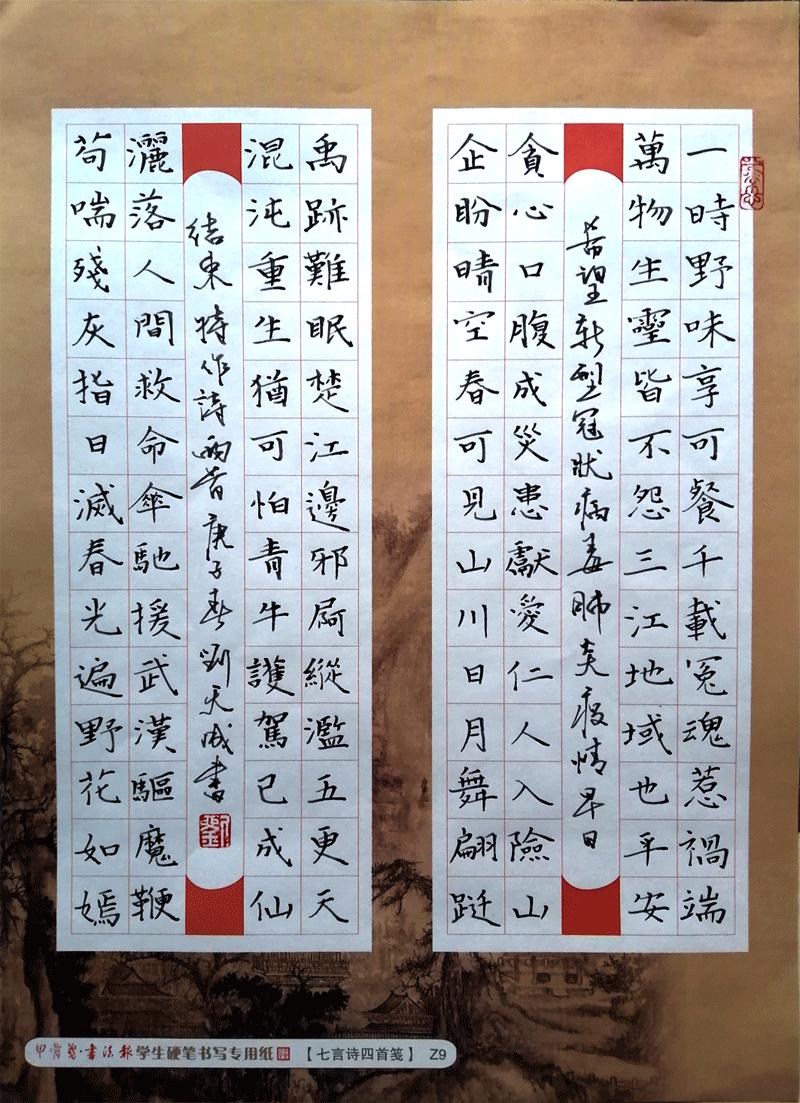 一時野味享可餐千載冤魂惹禍端
萬物生靈皆不怨三江地域也平安
希望新型冠狀病毒肺炎疫情早日
貪心口腹成災患獻愛仁人入險山
企盼晴空春可見山川日月舞翩跹
禹跡難眠楚江邊邪屙縱濫五更天
混沌重生猶可怕青牛護駕已成仙
結束特作詩兩首庚子春劉天書
灑落人間救命傘馳援武漢驅魔鞭
苟喘殘灰指日滅春光遍野花如嫣
甲骨文·書法報 学生硬笔书写专用纸 【七言诗四首笺】 Z9